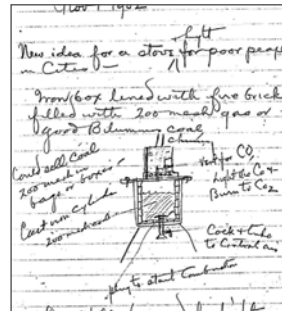 Nov 1 1902
Loft
New idea for a stove for poor people
in Cities —
Iron box lined with fire brick
filled with 200 mesh gas or
good Bitumns coal
Could sell coal
200 mesh in
bags or boxes
Cast iron cylinder
200 mesh coal
vent for CO
light the Co &
Burn to CO2
Cock & tube
to Control air
plug to start Combustion